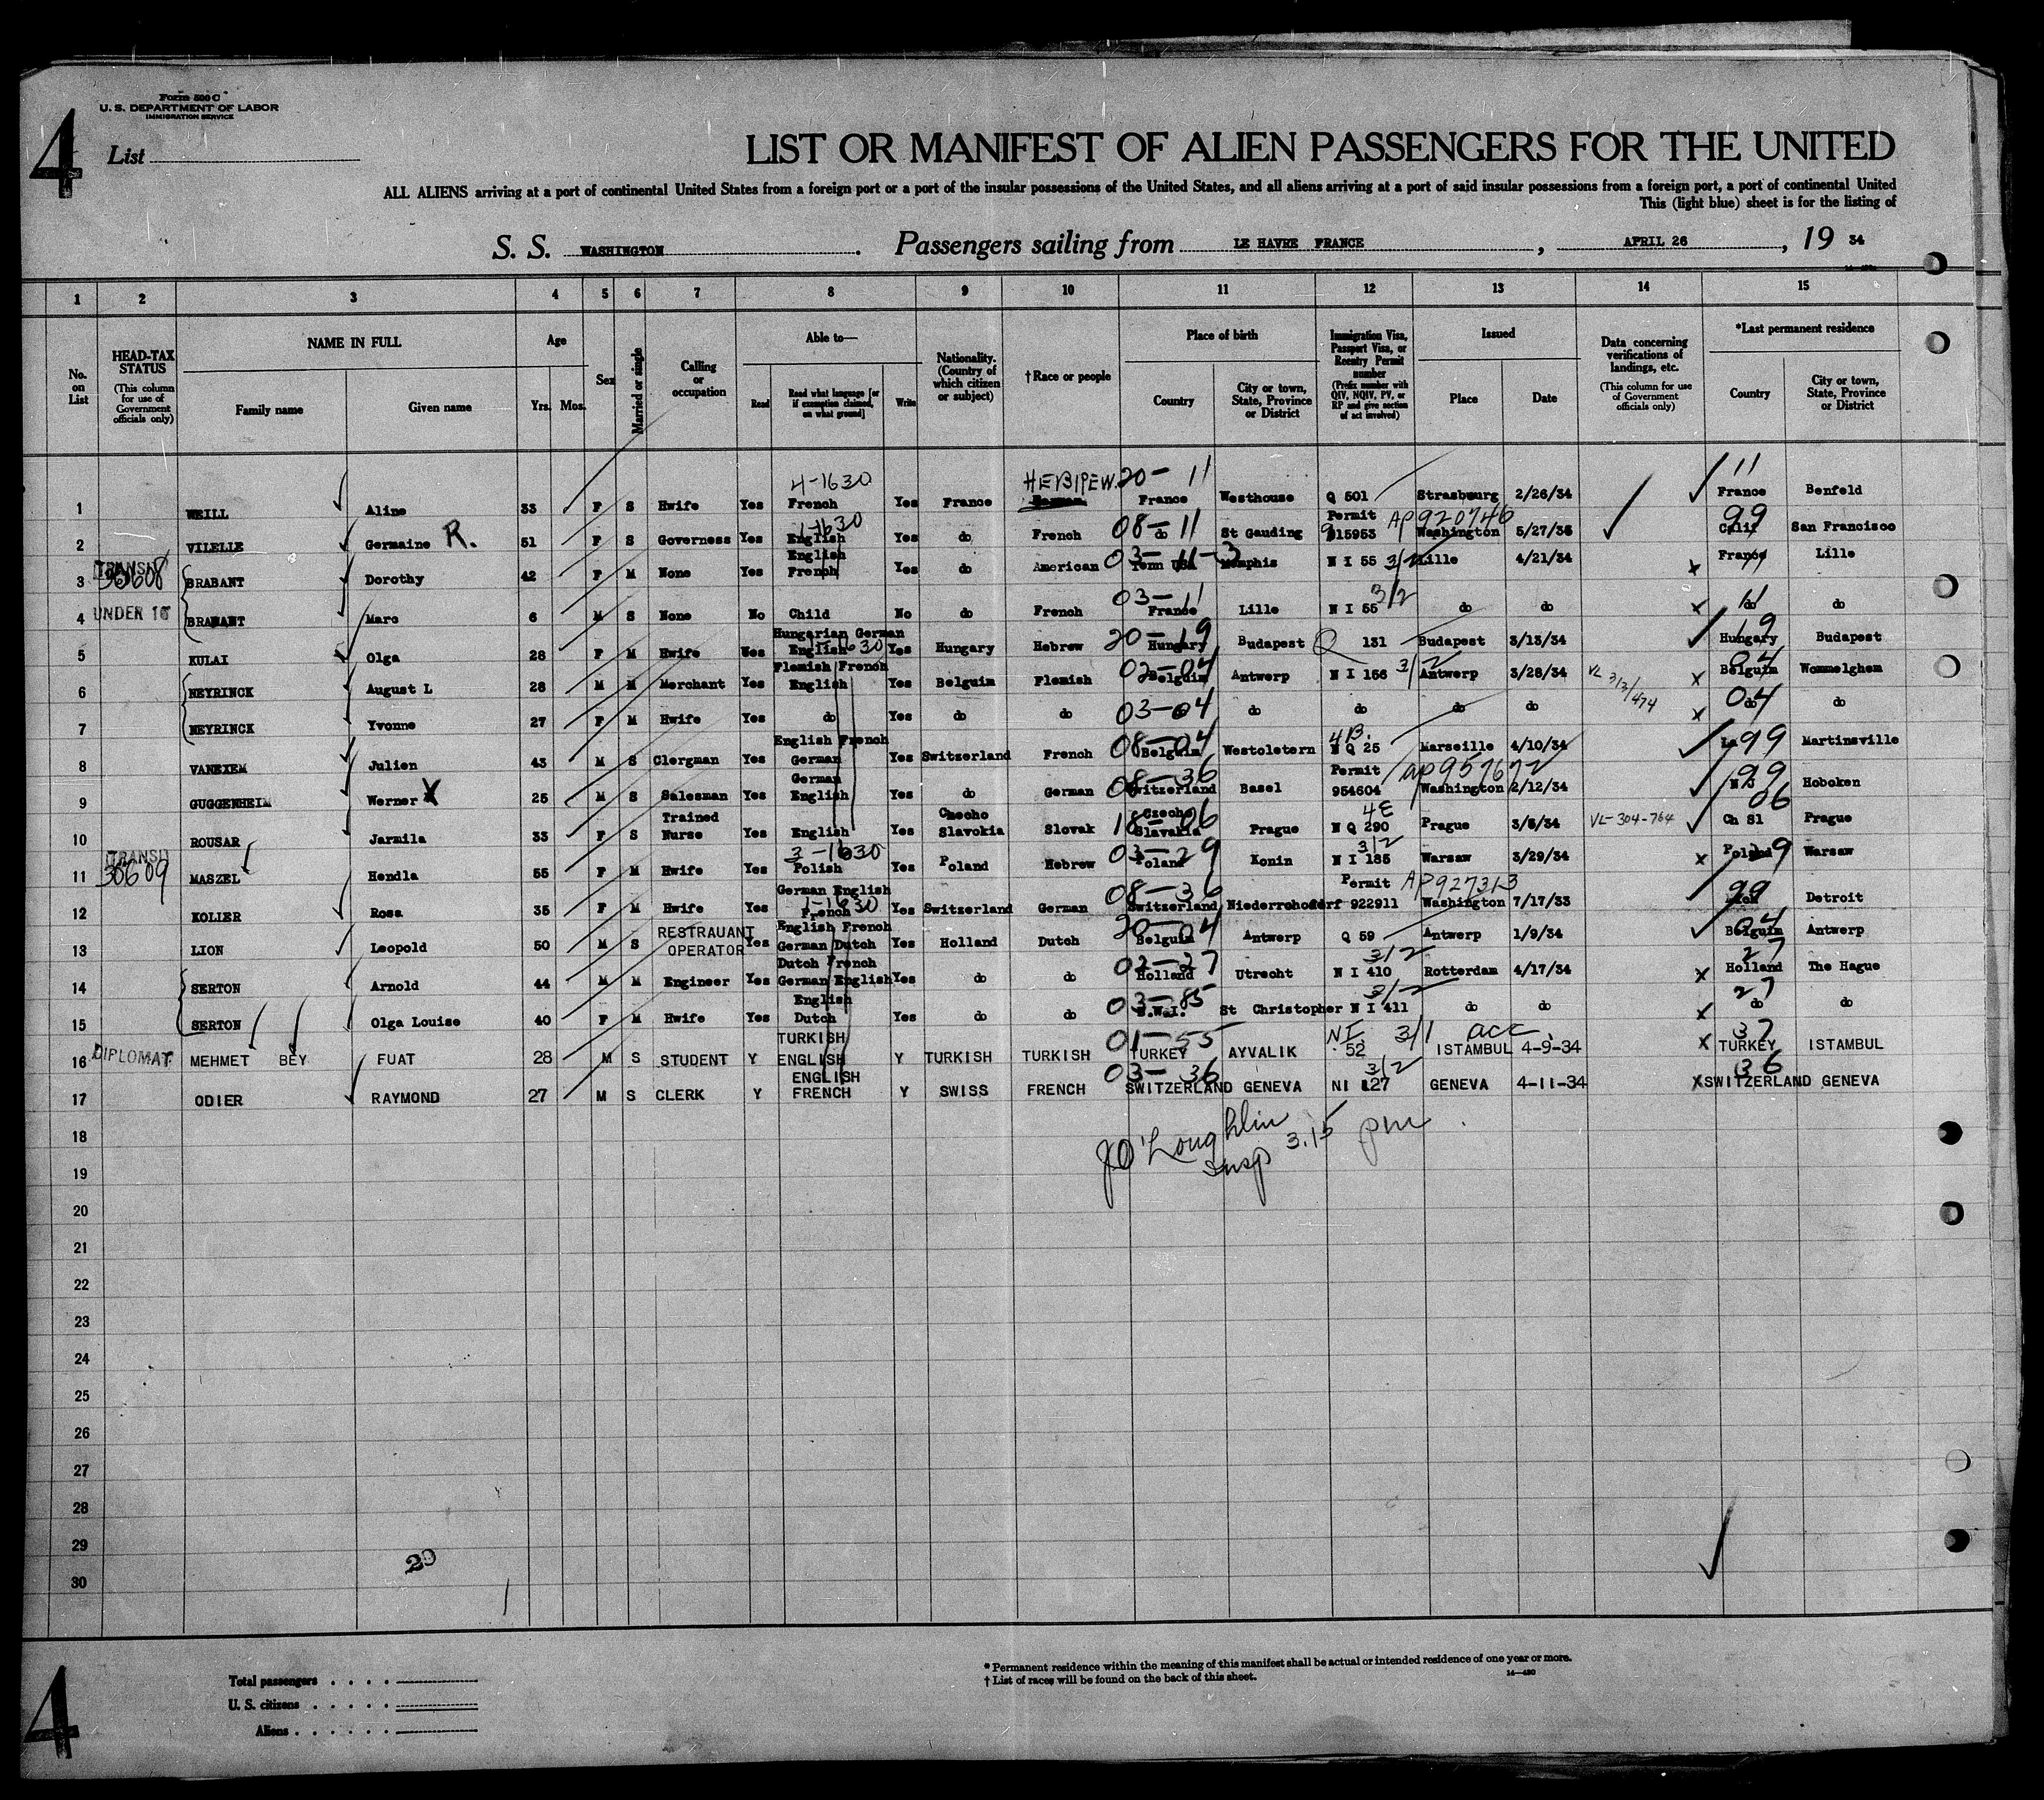 4
Form 500 C
U. S. DEPARTMENT OF LABOR
IMMIGRATION SERVICE
List
LIST OR MANIFEST OF ALIEN PASSENGERS FOR THE UNITED
ALL ALIENS arriving at a port of continental United States from a foreign port or a port of the insular possessions of the United States, and all aliens arriving at a port of said insular possessions from a foreign port, a port of continental United
This (light blue) sheet is for the listing of
S. S. WASHINGTON. Passengers sailing from LE HAVRE FRANCE, APRIL 26, 19 34
1 2 3 4 5 6 7 8 9 10 11 12 13 14 15
No. on List
HEAD-TAX STATUS (This column for use of Government officials only)
NAME IN FULL
Family name Given name
Age
Yrs. Mos.
Sex
Married or single
Calling or occupation
Able to—
Read Read what language [or if exemption claimed, on what ground] Write
Nationality. (Country of which citizen or subject)
†Race or people
Place of birth
Country City or town, State, Province or District
Immigration Visa, Passport Visa, or Reentry Permit number (Prefix number with QIV, NQIV, PV, or RP and give section of act involved)
Issued
Place Date
Data concerning verifications of landings, etc. (This column for use of Government officials only)
*Last permanent residence
Country City or town, State, Province or District
4-1630 20-11 11
1 WEILL Aline 33 F S Hwife Yes French Yes France France Westhouse Q 501 Strasbourg 2/26/34 France Benfeld
1-1630 08-11 Permit AP920746 99
2 VILELLE Germaine R. 51 F S Governess Yes English Yes do French do St Gauding 915953 Washington 5/27/35 Calif San Francisco
TRANSIT English 03-11-3
3 BRABANT Dorothy 42 F M None Yes French Yes do American Tenn USA Memphis N I 55 3/2 Lille 4/21/34 France Lille
03-11 3/2 11
4 UNDER 16 BRABANT Marc 6 M S None No Child No do French France Lille N I 55 do do do do
Hungarian German 20-19 19
5 KULAI Olga 28 F M Hwife Yes English Yes Hungary Hebrew Hungary Budapest Q 131 Budapest 3/13/34 Hungary Budapest
Flemish French 02-04 3/2 04
6 NEYRINCK August L 28 M M Merchant Yes English Yes Belguim Flemish Belguim Antwerp N I 156 Antwerp 3/28/34 VL 313/474 Belguim Wommelghem
03-04 04
7 NEYRINCK Yvonne 27 F M Hwife Yes do Yes do do do do do do do do
English French 08-04 413. 99
8 VANEXEM Julien 43 M S Clergman Yes German Yes Switzerland French Belguim Westoletern N Q 25 Marseille 4/10/34 La Martinsville
German 08-36 Permit ap957672 99
9 GUGGENHEIM Werner X 25 M S Salesman Yes English Yes do German Switzerland Basel 954604 Washington 2/12/34 N J Hoboken
Trained Czecho Czecho 18-06 4E 06
10 ROUSAR Jarmila 33 F S Nurse Yes English Yes Slavokia Slovak Slavakia Prague N Q 290 Prague 3/6/34 VL-304-764 Ch Sl Prague
TRANSIT 3-1630 03-29 3/2
11 35609 MASZEL Hendla 55 F M Hwife Yes Polish Yes Poland Hebrew Poland Konin N I 185 Warsaw 3/29/34 Poland Warsaw
German English 1-1630 08-36 Permit AP927313 99
12 KOLLER Rosa 35 F M Hwife Yes French Yes Switzerland German Switzerland Niederrohodorf 922911 Washington 7/17/33 Detroit
RESTRAUANT English French 20-04 04
13 LION Leopold 50 M S OPERATOR Yes German Dutch Yes Holland Dutch Belguim Antwerp Q 59 Antwerp 1/9/34 Belguim Antwerp
Dutch French 02-27 3/2 27
14 SERTON Arnold 44 M M Engineer Yes German English Yes do do Holland Utrecht N I 410 Rotterdam 4/17/34 Holland The Hague
English 03-85 3/2 27
15 SERTON Olga Louise 40 F M Hwife Yes Dutch Yes do do B.W.I. St Christopher N I 411 do do do do
TURKISH 01-55 NI 3/1 acc. 37
16 DIPLOMAT MEHMET BEY FUAT 28 M S STUDENT Y ENGLISH Y TURKISH TURKISH TURKEY AYVALIK 52 ISTAMBUL 4-9-34 TURKEY ISTAMBUL
ENGLISH 03-36 3/2 36
17 ODIER RAYMOND 27 M S CLERK Y FRENCH Y SWISS FRENCH SWITZERLAND GENEVA NI 127 GENEVA 4-11-34 SWITZERLAND GENEVA
18 JO'Loughlin
19 Insp 3.15 pm
20
21
22
23
24
25
26
27
28
29 29
30
4
Total passengers
U. S. citizens
Aliens
* Permanent residence within the meaning of this manifest shall be actual or intended residence of one year or more.
† List of races will be found on the back of this sheet.
14—480